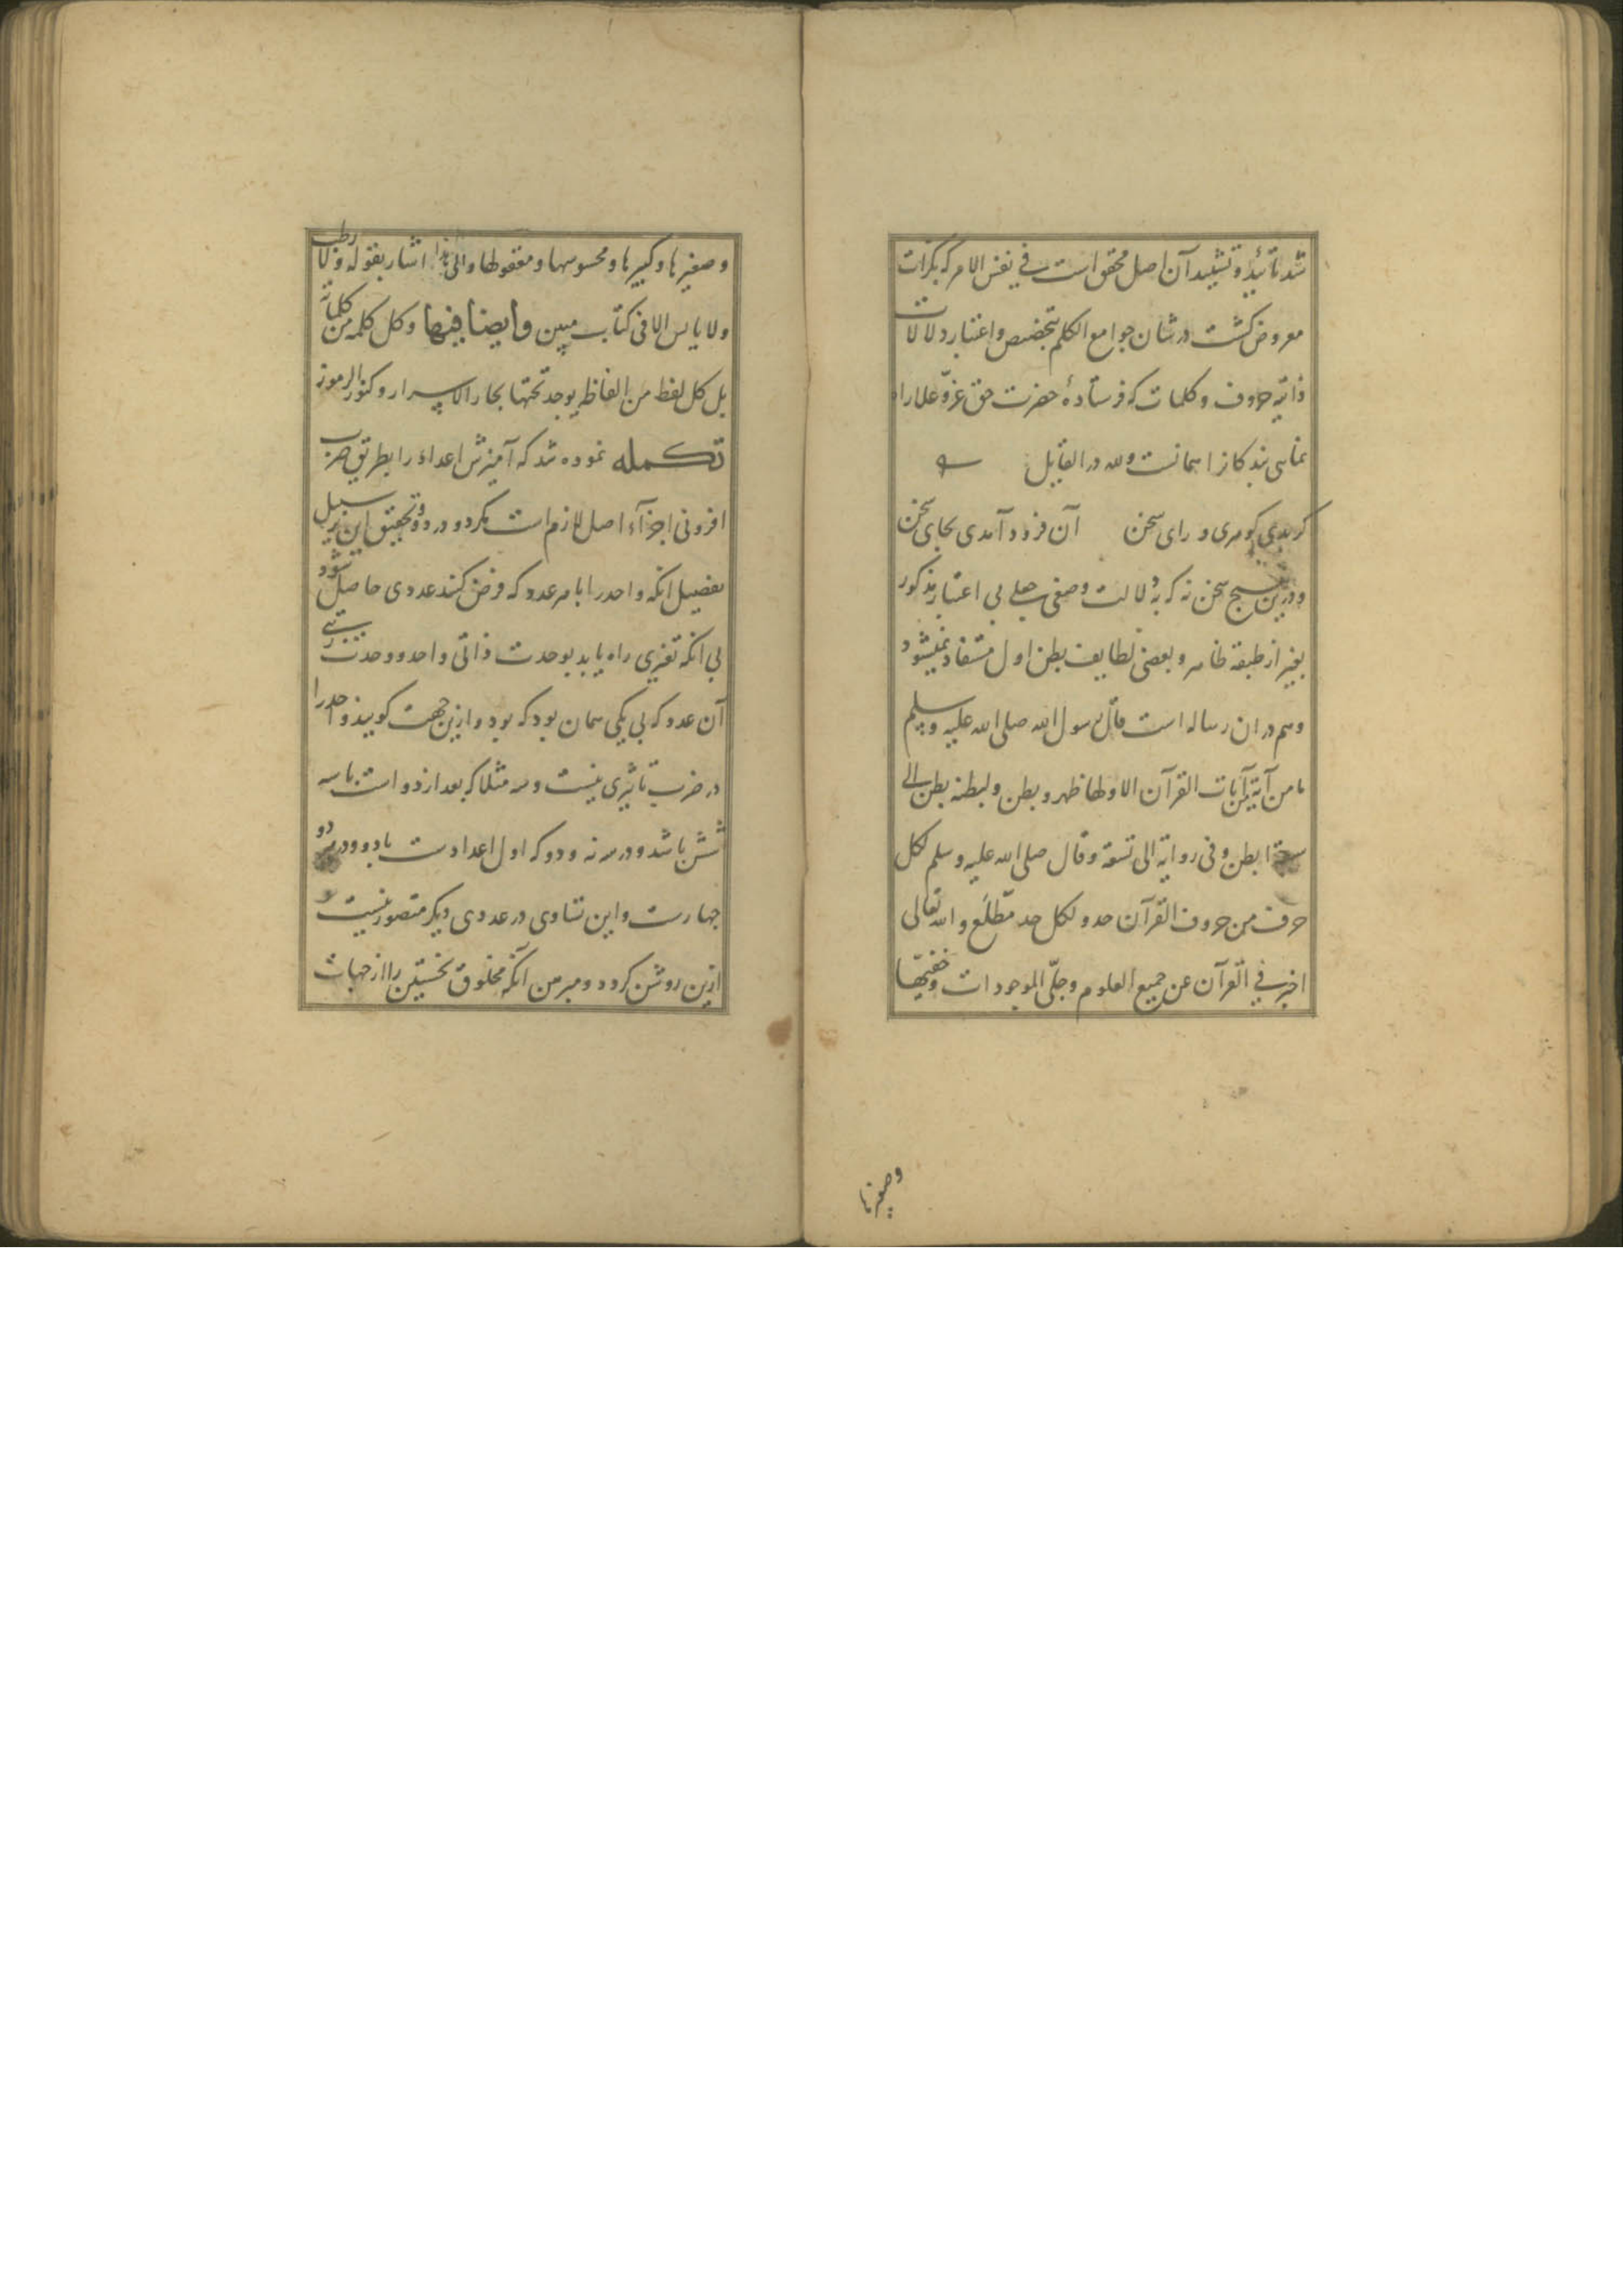 شد تأئید و تشیید آن اصل محقق است فی نفس الامر که بکرات
معروض کشت در شان جوامع الکلم بتخصیص و اعتبار دلالات
ذاتیه حروف و کلمات که فرستادهٔ حضرت حق عزّ و علا را
تماسی بندکانرا همانست ولله در القایل
کر بدی کوهری ورای سخن آن فرود آمدی بجای سخن
و درین سخن نه که به دلالت وضعی جعلی بی اعتبار مذکور
بغیر از طبقه ظاهر و بعضی لطایف بطن اول مستفاد نمیشود
وهم در ان رساله است قال رسول الله صلی الله علیه و سلم
ما من آیة من آیات القرآن الا ولها ظهر و بطن ولبطنه بطن الی
سبعة ابطن و فی روایة الی تسعة وقال صلی الله علیه وسلم لکل
حرف من حروف القرآن حد ولکل حد مطّلع والله تعالی
اخبر فی القرآن عن جمیع العلوم و جلّی الموجودات و خفیّها
وصغیرها
وصغیرها و کبیرها و محسوسها و معقولها والی هذا اشار بقوله ولا رطب
ولا یابس الا فی کتاب مبین وایضا فیها وکل کلمه من کلماته
بل کل لفظ من الفاظه یوجد تحتها بحار الاسرار و کنوز الرموز
تکمله نموده شد که آمیزش اعداد را بطریق ضرب
افزونی اجزآء اصل لازم است مکر دو در دو و تحقیق این بر سبیل
تفصیل انکه واحد را با هر عدد که فرض کنند عددی حاصل نشود
بی انکه تغیری راه یابد بوحدت ذاتی واحد و وحدت نسبی
آن عدد که بی یکی همان بود که بود و ازین جهت کویند واحد را
در ضرب تأثیری نیست و سه مثلا که بعد از دو است با سه
شش باشد و در سه نه و دو که اول اعدادست با دو و در دو
چهارست و این تساوی در عددی دیکر متصور نیست و
ازین روشن کردد و مبرهن آنکه مخلوق نخستین را از جهات